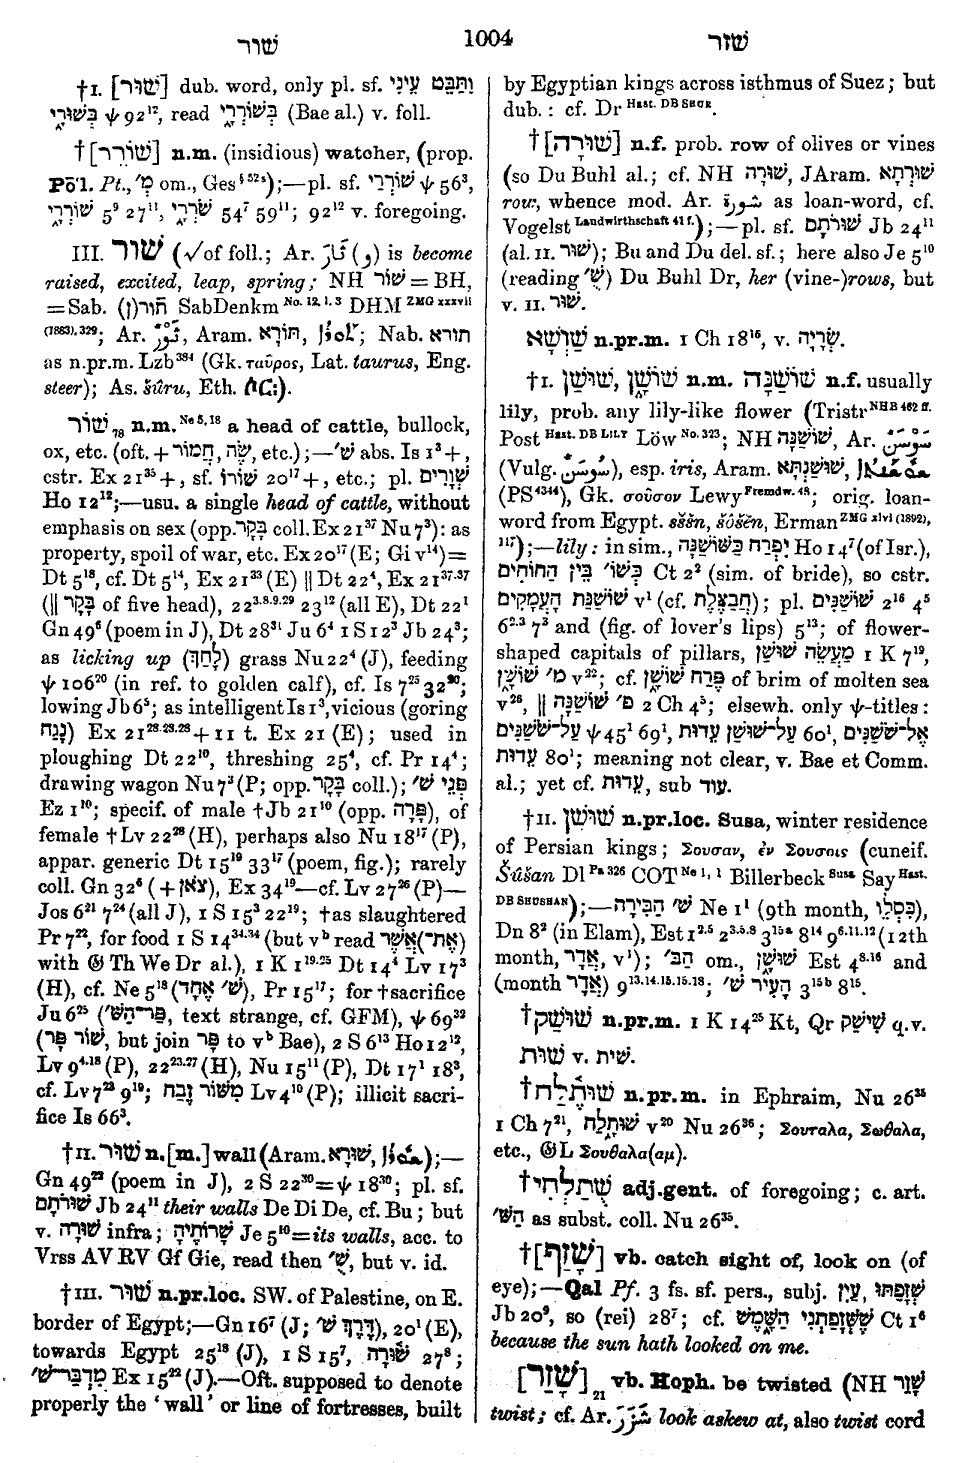 שור
1004
שזר
†I. [שׁוּר] dub. word, only pl. sf. וַתַּבֵּט עֵינִי
בְּשׁוּרָ֑י ψ 92¹², read בְּשׁוֹרְרָ֑י (Bae al.) v. foll.
†[שׁוֹרֵר] n.m. (insidious) watcher, (prop.
Pō‘l. Pt., מְ׳ om., Ges§52s);—pl. sf. שׁוֹרְרַי ψ 56³,
שׁוֹרְרָ֑י 5⁹ 27¹¹, שֹׁרְרָ֑י 54⁷ 59¹¹; 92¹² v. foregoing.
III. שׁוֹר (√of foll.; Ar. ثَارَ (و) is become
raised, excited, leap, spring; NH שׁוֹר = BH,
=Sab. (ן)ה֗ור SabDenkm No. 12, l. 3 DHM ZMG xxxvii
(1883), 329; Ar. ثَوْرٌ, Aram. תּוֹרָא, ܬܘܪܐ; Nab. תורא
as n.pr.m. Lzb³⁸⁴ (Gk. ταῦρος, Lat. taurus, Eng.
steer); As. šûru, Eth. ሶር፡).
שׁוֹר₇₈ n.m. Ne 5, 18 a head of cattle, bullock,
ox, etc. (oft. + חֲמוֹר, שֶׂה, etc.);—שׁ׳ abs. Is 1³ +,
cstr. Ex 21³⁵ +, sf. שׁוֹרוֹ 20¹⁷ +, etc.; pl. שְׁוָרִים
Ho 12¹²;—usu. a single head of cattle, without
emphasis on sex (opp. בָּקָר coll. Ex 21³⁷ Nu 7³): as
property, spoil of war, etc. Ex 20¹⁷ (E; Gi v¹⁴)=
Dt 5¹⁸, cf. Dt 5¹⁴, Ex 21³³ (E) || Dt 22⁴, Ex 21³⁷·³⁷
(|| בָּקָר of five head), 22³·⁸·⁹·²⁹ 23¹² (all E), Dt 22¹
Gn 49⁶ (poem in J), Dt 28³¹ Ju 6⁴ 1 S 12³ Jb 24³;
as licking up (לָחַךְ) grass Nu 22⁴ (J), feeding
ψ 106²⁰ (in ref. to golden calf), cf. Is 7²⁵ 32²⁰;
lowing Jb 6⁵; as intelligent Is 1³, vicious (goring
נָגַח) Ex 21²⁸·²⁸·²⁸ + 11 t. Ex 21 (E); used in
ploughing Dt 22¹⁰, threshing 25⁴, cf. Pr 14⁴;
drawing wagon Nu 7³ (P; opp. בָּקָר coll.); פְּנֵי שׁ׳
Ez 1¹⁰; specif. of male †Jb 21¹⁰ (opp. פָּרָה), of
female †Lv 22²⁸ (H), perhaps also Nu 18¹⁷ (P),
appar. generic Dt 15¹⁹ 33¹⁷ (poem, fig.); rarely
coll. Gn 32⁶ (+ צֹאן), Ex 34¹⁹—cf. Lv 27²⁶ (P)—
Jos 6²¹ 7²⁴ (all J), 1 S 15³ 22¹⁹; †as slaughtered
Pr 7²², for food 1 S 14³⁴·³⁴ (but vᵇ read אֲשֶׁר(־אֶת)
with 𝔊 Th We Dr al.), 1 K 1¹⁹·²⁵ Dt 14⁴ Lv 17³
(H), cf. Ne 5¹⁸ (שׁ׳ אֶחָד), Pr 15¹⁷; for †sacrifice
Ju 6²⁵ (פַּר־הַשּׁ׳, text strange, cf. GFM), ψ 69³²
(שׁוֹר פָּר, but join פָּר to vᵇ Bae), 2 S 6¹³ Ho 12¹²,
Lv 9⁴·¹⁸ (P), 22²³·²⁷ (H), Nu 15¹¹ (P), Dt 17¹ 18³,
cf. Lv 7²³ 9¹⁹; מִשּׁוֹר זֶבַח Lv 4¹⁰ (P); illicit sacri-
fice Is 66³.
†II. שׁוּר n.[m.] wall (Aram. שׁוּרָא, ܫܘܪܐ);—
Gn 49²² (poem in J), 2 S 22³⁰=ψ 18³⁰; pl. sf.
שׁוּרֹתָם Jb 24¹¹ their walls De Di De, cf. Bu; but
v. שׁוּרָה infra; שָׁרוֹתֶיהָ Je 5¹⁰=its walls, acc. to
Vrss AV RV Gf Gie, read then שֻׁ׳, but v. id.
†III. שׁוּר n.pr.loc. SW. of Palestine, on E.
border of Egypt;—Gn 16⁷ (J; דֶּרֶךְ שׁ׳), 20¹ (E),
towards Egypt 25¹⁸ (J), 1 S 15⁷, שׁוּרָה 27⁸;
מִדְבַּר־שׁ׳ Ex 15²² (J).—Oft. supposed to denote
properly the ‘wall’ or line of fortresses, built
by Egyptian kings across isthmus of Suez; but
dub.: cf. Dr Hast. DB SHUR.
†[שׁוּרָה] n.f. prob. row of olives or vines
(so Du Buhl al.; cf. NH שׁוּרָה, JAram. שׁוּרְתָא
row, whence mod. Ar. شورة as loan-word, cf.
Vogelst Landwirthschaft 41 f.);—pl. sf. שׁוּרֹתָם Jb 24¹¹
(al. II. שׁוּר); Bu and Du del. sf.; here also Je 5¹⁰
(reading שֻׁ׳) Du Buhl Dr, her (vine-)rows, but
v. II. שׁוּר.
שַׁוְשָׁא n.pr.m. 1 Ch 18¹⁶, v. שְׂרָיָה.
†I. שׁוּשַׁן, שׁוֹשָׁ֑ן n.m. שׁוֹשַׁנָּה n.f. usually
lily, prob. any lily-like flower (Tristr NHB 462 ff.
Post Hast. DB LILY Löw No. 323; NH שׁוֹשַׁנָּה, Ar. سَوْسَن
(Vulg. سُوسَن), esp. iris, Aram. שׁוּשַׁנְתָּא, ܫܘܫܢܬܐ
(PS⁴³⁴⁴), Gk. σοῦσον Lewy Fremdw. 48; orig. loan-
word from Egypt. sššn, šôšěn, Erman ZMG xlvi (1892),
117);—lily: in sim., יִפְרַח כַּשּׁוֹשַׁנָּה Ho 14⁷ (of Isr.),
כְּשׁוֹ׳ בֵּין הַחוֹחִים Ct 2² (sim. of bride), so cstr.
שׁוֹשַׁנַּת הָעֲמָקִים v¹ (cf. חֲבַצֶּלֶת); pl. שׁוֹשַׁנִּים 2¹⁶ 4⁵
6²·³ 7³ and (fig. of lover's lips) 5¹³; of flower-
shaped capitals of pillars, מַעֲשֵׂה שׁוּשַׁן 1 K 7¹⁹,
מ׳ שׁוֹשָׁ֑ן v²²; cf. פֶּרַח שׁוֹשָׁ֑ן of brim of molten sea
v²⁶, || פ׳ שׁוֹשַׁנָּה 2 Ch 4⁵; elsewh. only ψ-titles:
עַל־שֹׁשַׁנִּים ψ 45¹ 69¹, עַל־שׁוּשַׁן עֵדוּת 60¹, אֶל־שֹׁשַׁנִּים
עֵדוּת 80¹; meaning not clear, v. Bae et Comm.
al.; yet cf. עֵדוּת, sub עוד.
†II. שׁוּשַׁן n.pr.loc. Susa, winter residence
of Persian kings; Σουσαν, ἐν Σουσοις (cuneif.
Šûšan Dl Pa 326 COT Ne 1, 1 Billerbeck Susa Say Hast.
DB SHUSHAN);—שׁ׳ הַבִּירָה Ne 1¹ (9th month, כִּסְלֵו),
Dn 8² (in Elam), Est 1²·⁵ 2³·⁵·⁸ 3¹⁵ᵃ 8¹⁴ 9⁶·¹¹·¹² (12th
month, אֲדָר, v¹); הַבּ׳ om., שׁוּשָׁ֑ן Est 4⁸·¹⁶ and
(month אֲדָר) 9¹³·¹⁴·¹⁵·¹⁵·¹⁸; הָעִיר שׁ׳ 3¹⁵ᵇ 8¹⁵.
†שׁוּשַׁק n.pr.m. 1 K 14²⁵ Kt, Qr שִׁישַׁק q.v.
שׁוּת v. שִׁית.
†שׁוּתֶ֫לַח n.pr.m. in Ephraim, Nu 26³⁵
1 Ch 7²¹, שׁוּתָ֑לַח v²⁰ Nu 26³⁶; Σουταλα, Σωθαλα,
etc., 𝔊L Σουθαλα(αμ).
†שֻׁתַלְחִי adj.gent. of foregoing; c. art.
הַשֻּׁ׳ as subst. coll. Nu 26³⁵.
†[שָׁזַף] vb. catch sight of, look on (of
eye);—Qal Pf. 3 fs. sf. pers., subj. עַיִן, שְׁזָפַתּוּ
Jb 20⁹, so (rei) 28⁷; cf. שֶׁשְּׁזָפַתְנִי הַשָּׁ֑מֶשׁ Ct 1⁶
because the sun hath looked on me.
[שָׁזַר]₂₁ vb. Hoph. be twisted (NH שָׁזַר
twist; cf. Ar. شَزَرَ look askew at, also twist cord